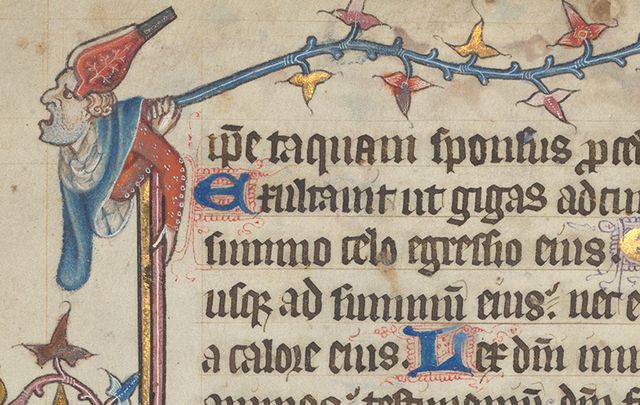 ip̄e taquam sponsus
Exultauit ut gigas ad
summo celo egressio eius.
usqꝫ ad summū eius: nec
a calore eius. Lex dn̄i